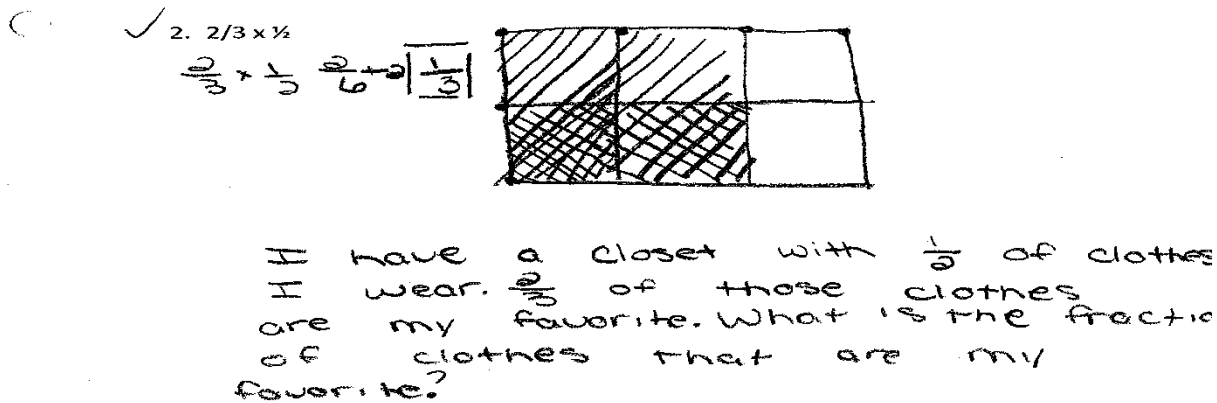 C. ✓ 2. 2/3 x ½
2/3 x 1/2 2/6 → 1/3
I have a closet with 1/2 of clothes
I wear. 2/3 of those clothes
are my favorite. What is the fractio
of clothes that are my
favorite?